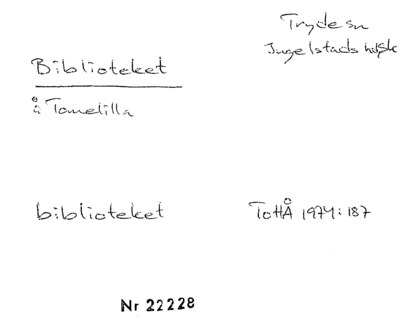 Tryde sn
Ingelstads hd Sk
Biblioteket
å Tomelilla
biblioteket
ToHÅ 1974:187
Nr 22228